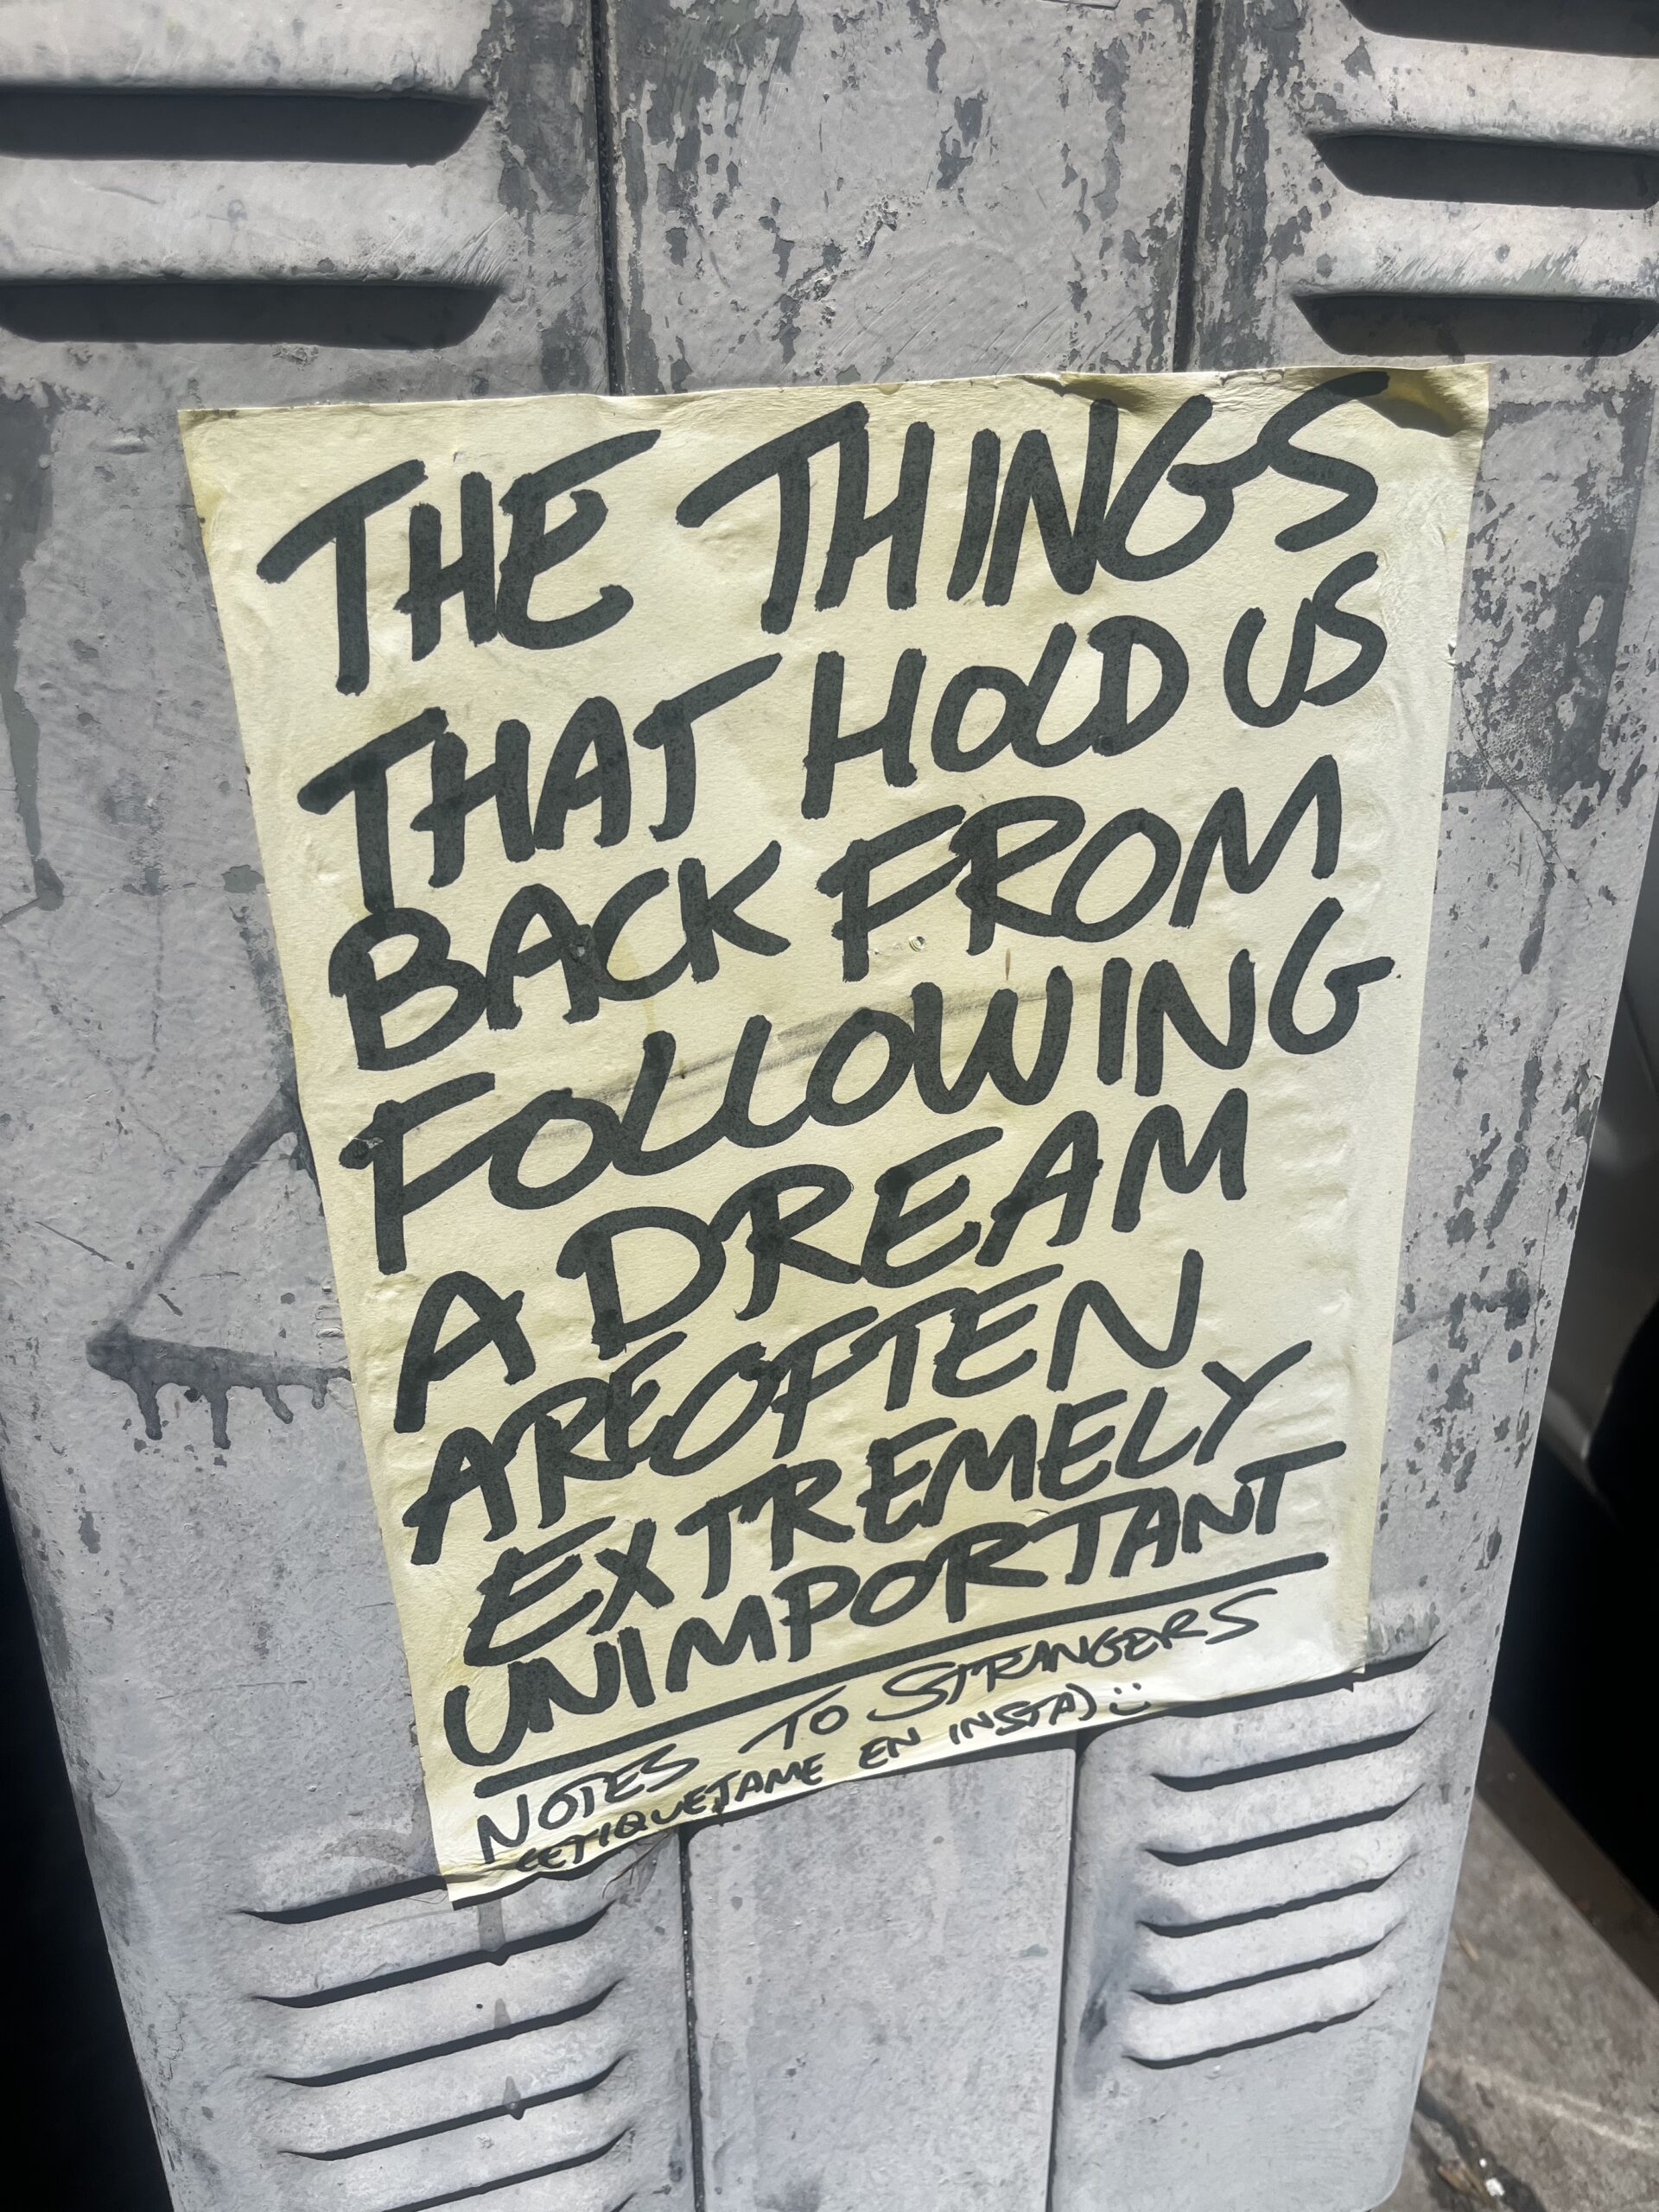 THE THINGS
THAT HOLD US
BACK FROM
FOLLOWING
A DREAM
ARE OFTEN
EXTREMELY
UNIMPORTANT
NOTES TO STRANGERS
(ETIQUETAME EN INSTA) :)